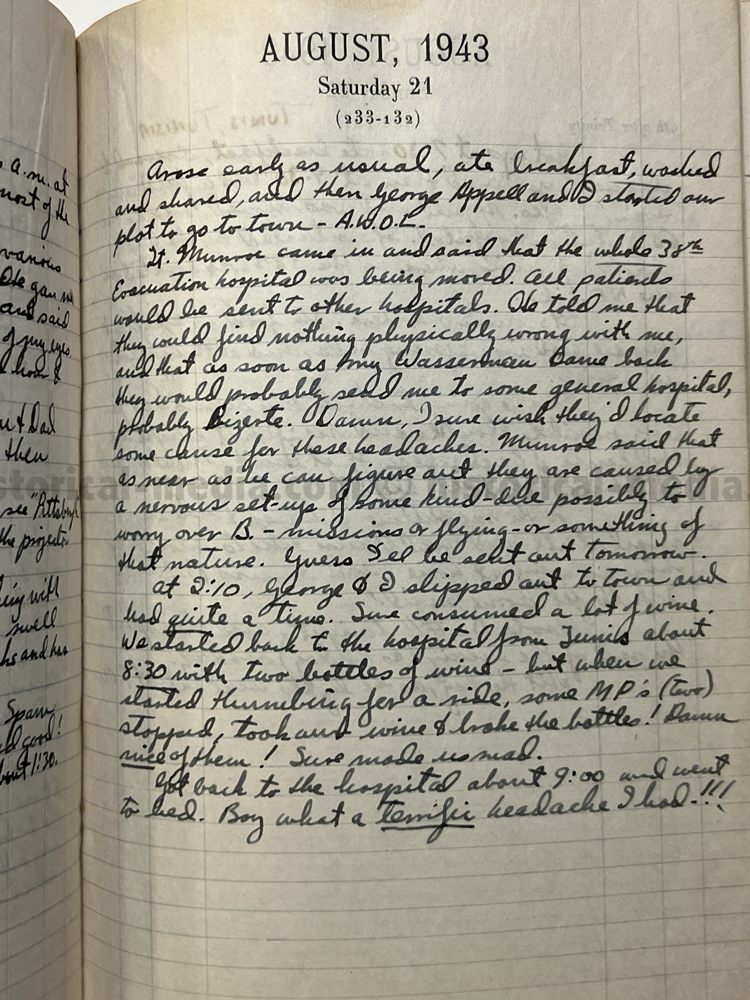 AUGUST, 1943
Saturday 21
(233-132)
Arose early as usual, ate breakfast, washed
and shaved, and then George Appell and I started our
plot to go to town - A.W.O.L.
Lt. Munroe came in and said that the whole 38th
Evacuation hospital was being moved. All patients
would be sent to other hospitals. He told me that
they would find nothing physically wrong with me,
and that as soon as my Wasserman came back
they would probably send me to some general hospital,
probably Bizerte. Damn, I sure wish they'd locate
some cause for these headaches. Munroe said that
as near as he can figure out they are caused by
a nervous set-up of some kind - due possibly to
worry over B. - missions or flying - or something of
that nature. Guess I'll be sent out tomorrow.
At 2:10, George & I slipped out to town and
had quite a time. Sure consumed a lot of wine.
We started back to the hospital from Tunis about
8:30 with two bottles of wine - but when we
started thumbing for a ride, some MP's (two)
stopped, took our wine & broke the bottles! Damn
nice of them! Sure made us mad.
Got back to the hospital about 9:00 and went
to bed. Boy what a terrific headache I had.!!!
a.m. at
most of the
various
He gave me
and said
of my eyes
& Dad
then
see "Pittsburgh
the projector
with
swell
and has
Spam
good!
about 1:30.